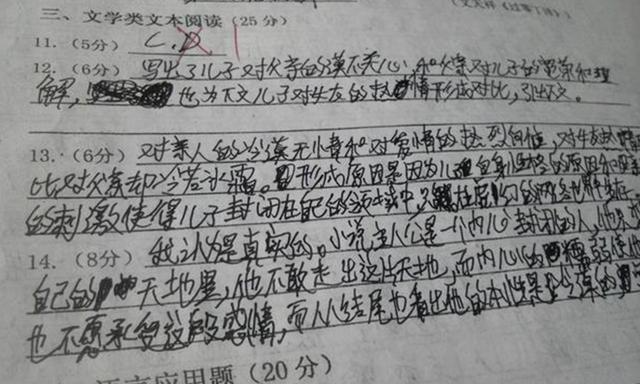 三、文学类文本阅读(25分)
11.(5分) C.D
12.(6分) 写出了儿子对父亲的漠不关心,和父亲对儿子的宽容和理
解, 也为下文儿子对女友的热情形成对比,引出下文。
13.(6分) 对亲人的冷漠无情和对爱情的热烈向往,对女友热情
比对父亲却冷若冰霜。形成原因是因为儿子自身性格的原因和
的刺激使得儿子封闭在自己的领域中,只
14.(8分) 我认为是真实的。小说主人公是一个内心封闭的人,他
自己的天地里,他不敢走出这片天地,而内心的懦弱使
也不愿承受这段感情,而从结尾也看出他的本性是冷漠的
语言应用题(20分)